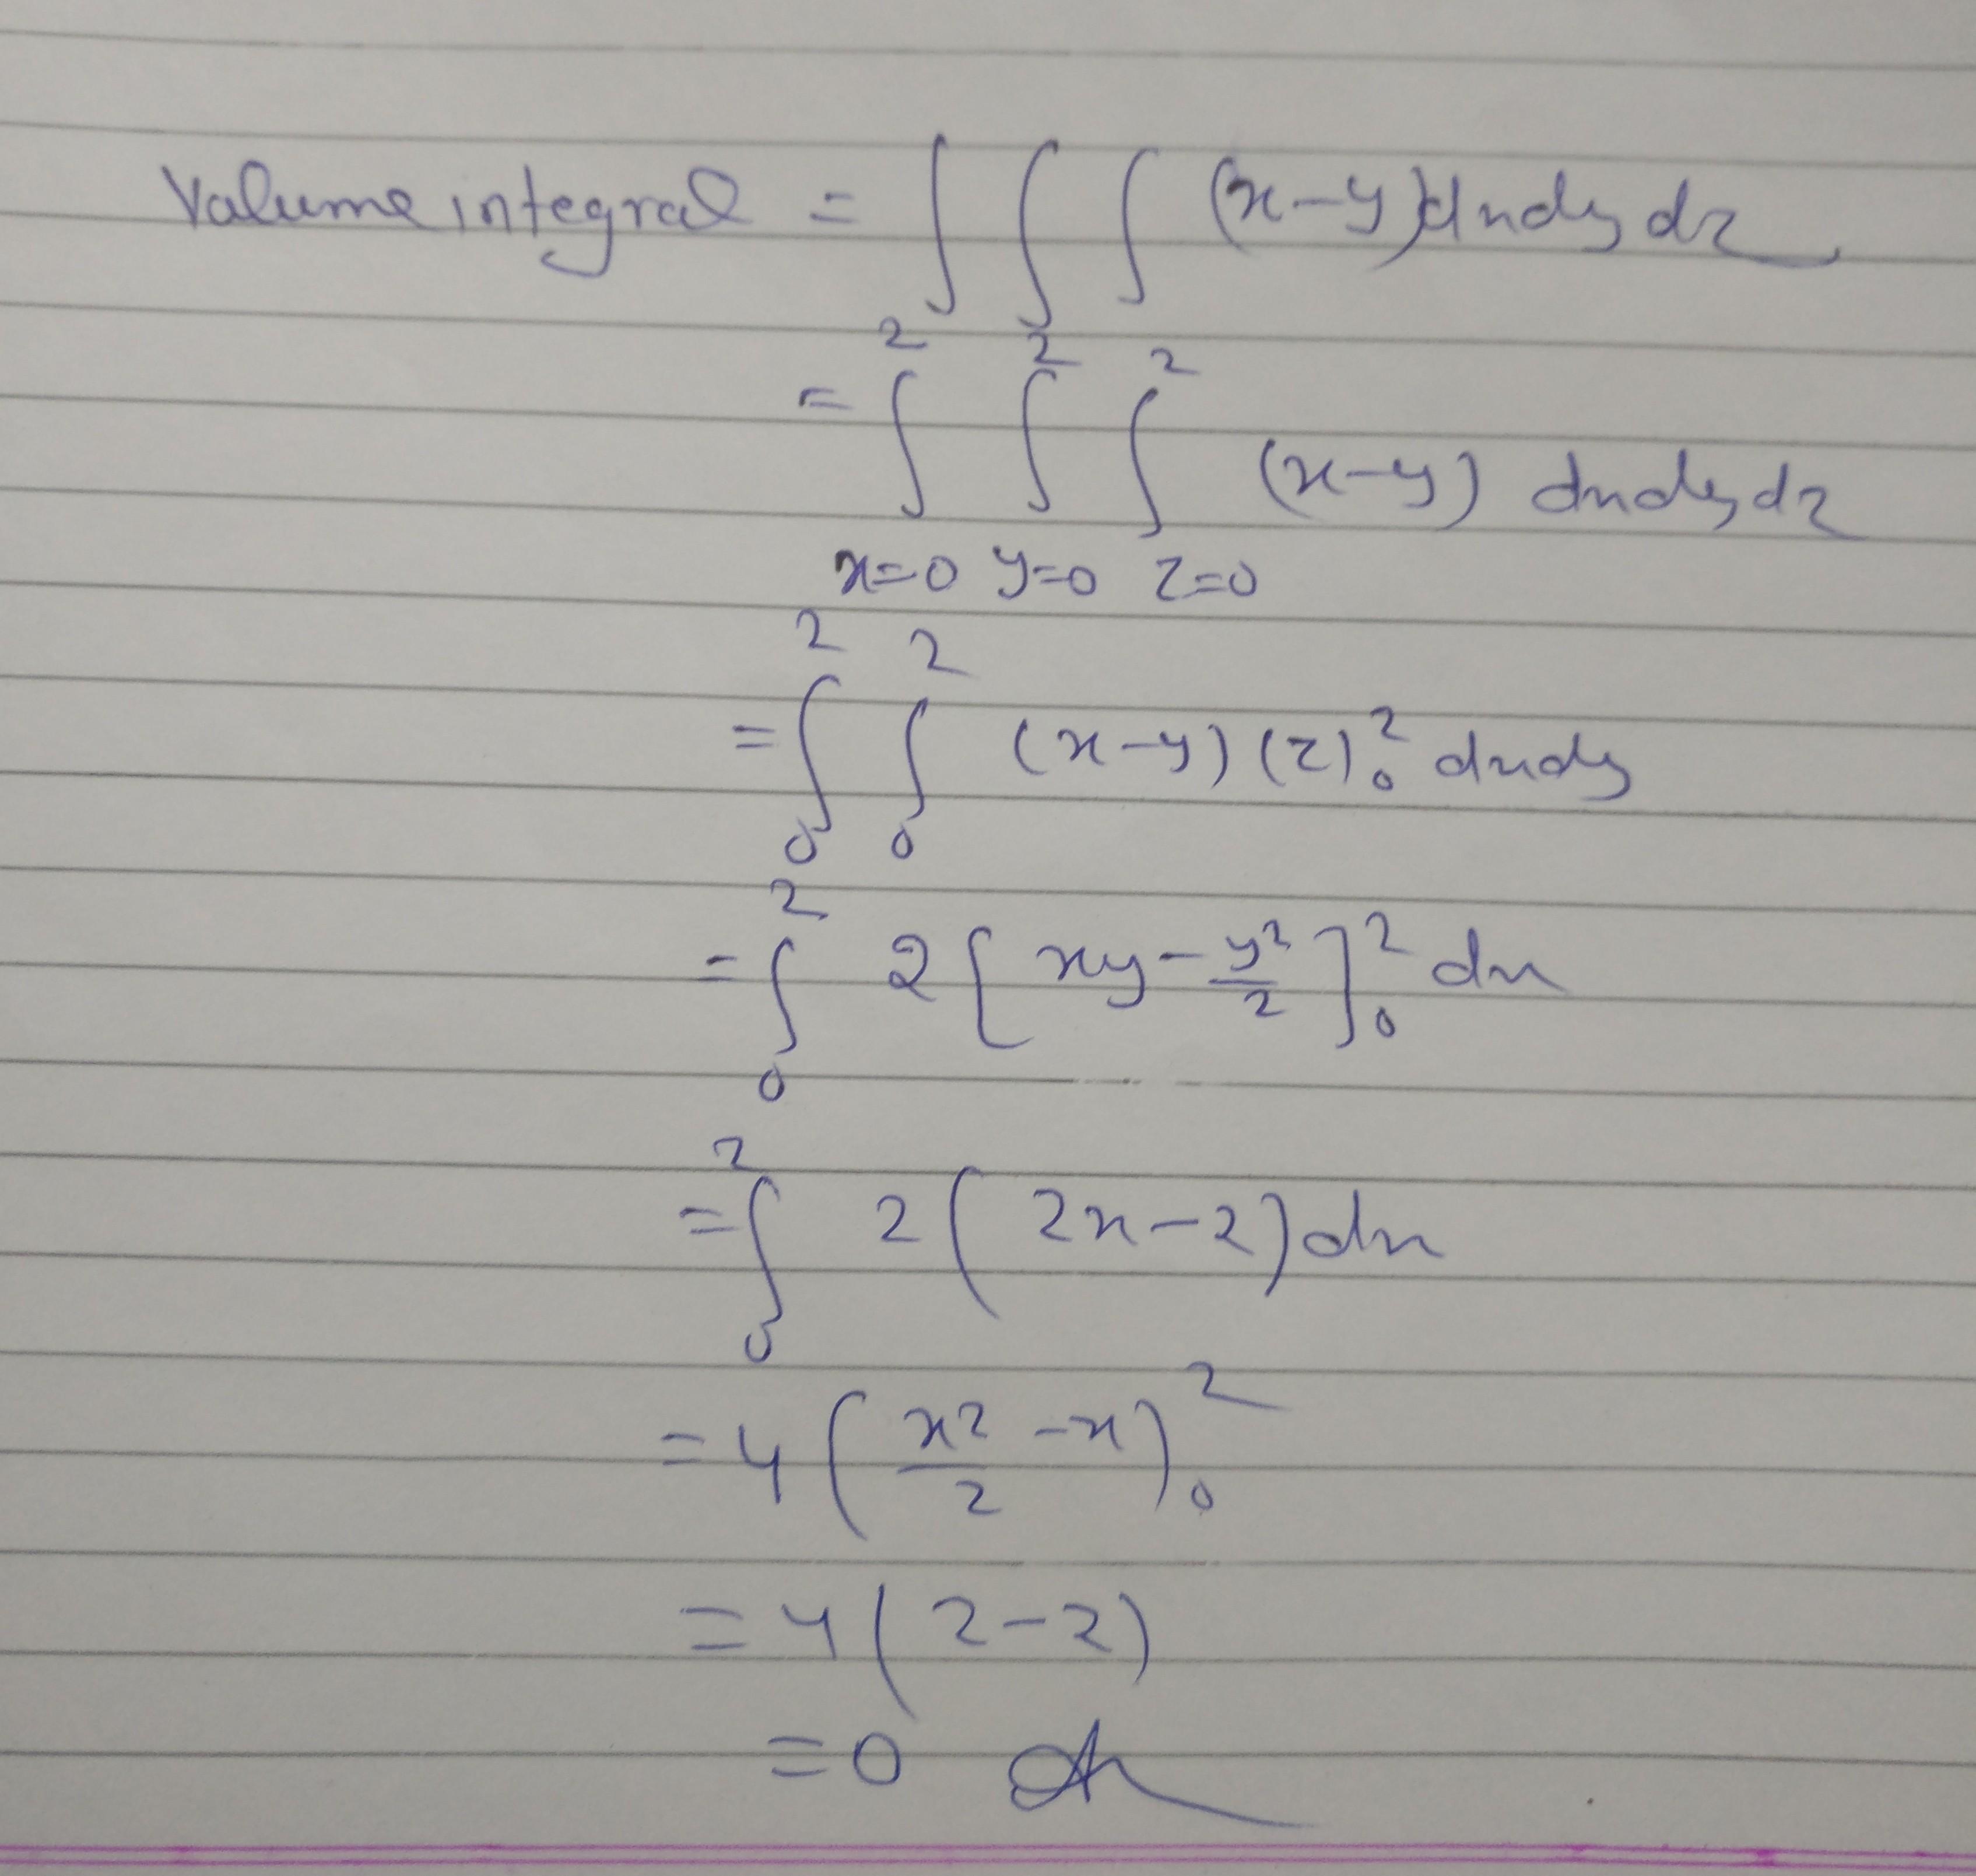 Volume integral = ∫ ∫ ∫ (x-y) dx dy dz
= ∫_{x=0}^{2} ∫_{y=0}^{2} ∫_{z=0}^{2} (x-y) dx dy dz
= ∫_{0}^{2} ∫_{0}^{2} (x-y) (z)_{0}^{2} dx dy
= ∫_{0}^{2} 2 [xy - y²/2]_{0}^{2} dx
= ∫_{0}^{2} 2 (2x-2) dx
= 4 (x²/2 - x)_{0}^{2}
= 4 (2-2)
= 0